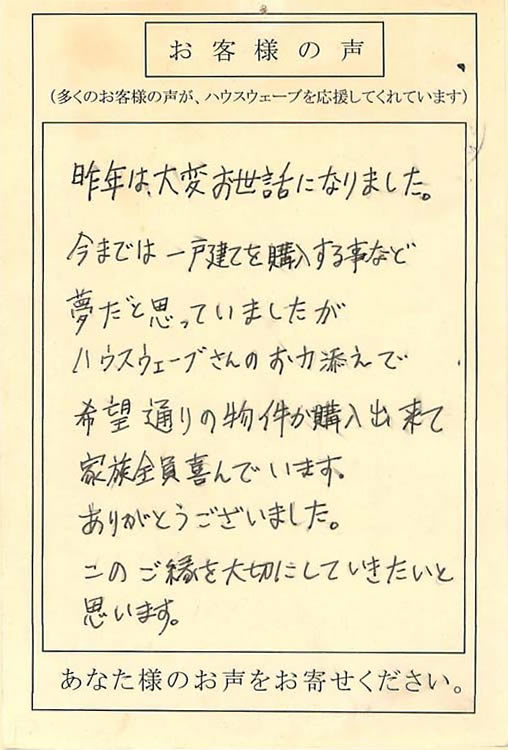 お客様の声
(多くのお客様の声が、ハウスウェーブを応援してくれています)
昨年は、大変お世話になりました。
今までは一戸建てを購入する事など
夢だと思っていましたが
ハウスウェーブさんのお力添えで
希望通りの物件が購入出来て
家族全員喜んでいます。
ありがとうございました。
このご縁を大切にしていきたいと
思います。
あなた様のお声をお寄せください。